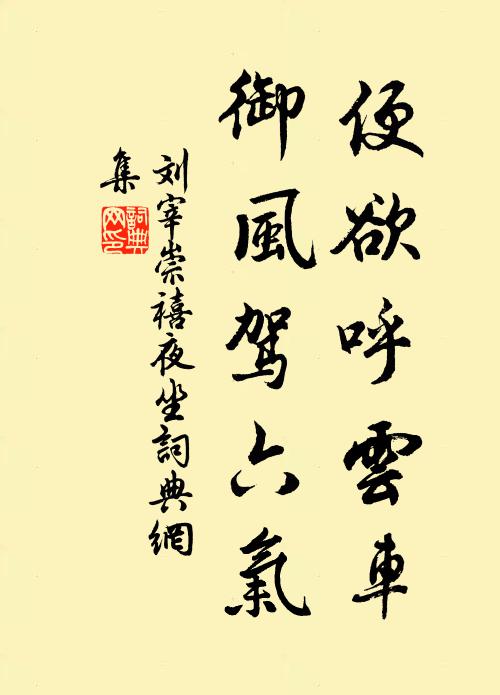 便欲呼雲車
御風駕六氣
刘宰崇禧夜坐詞典網
集
詞典網印